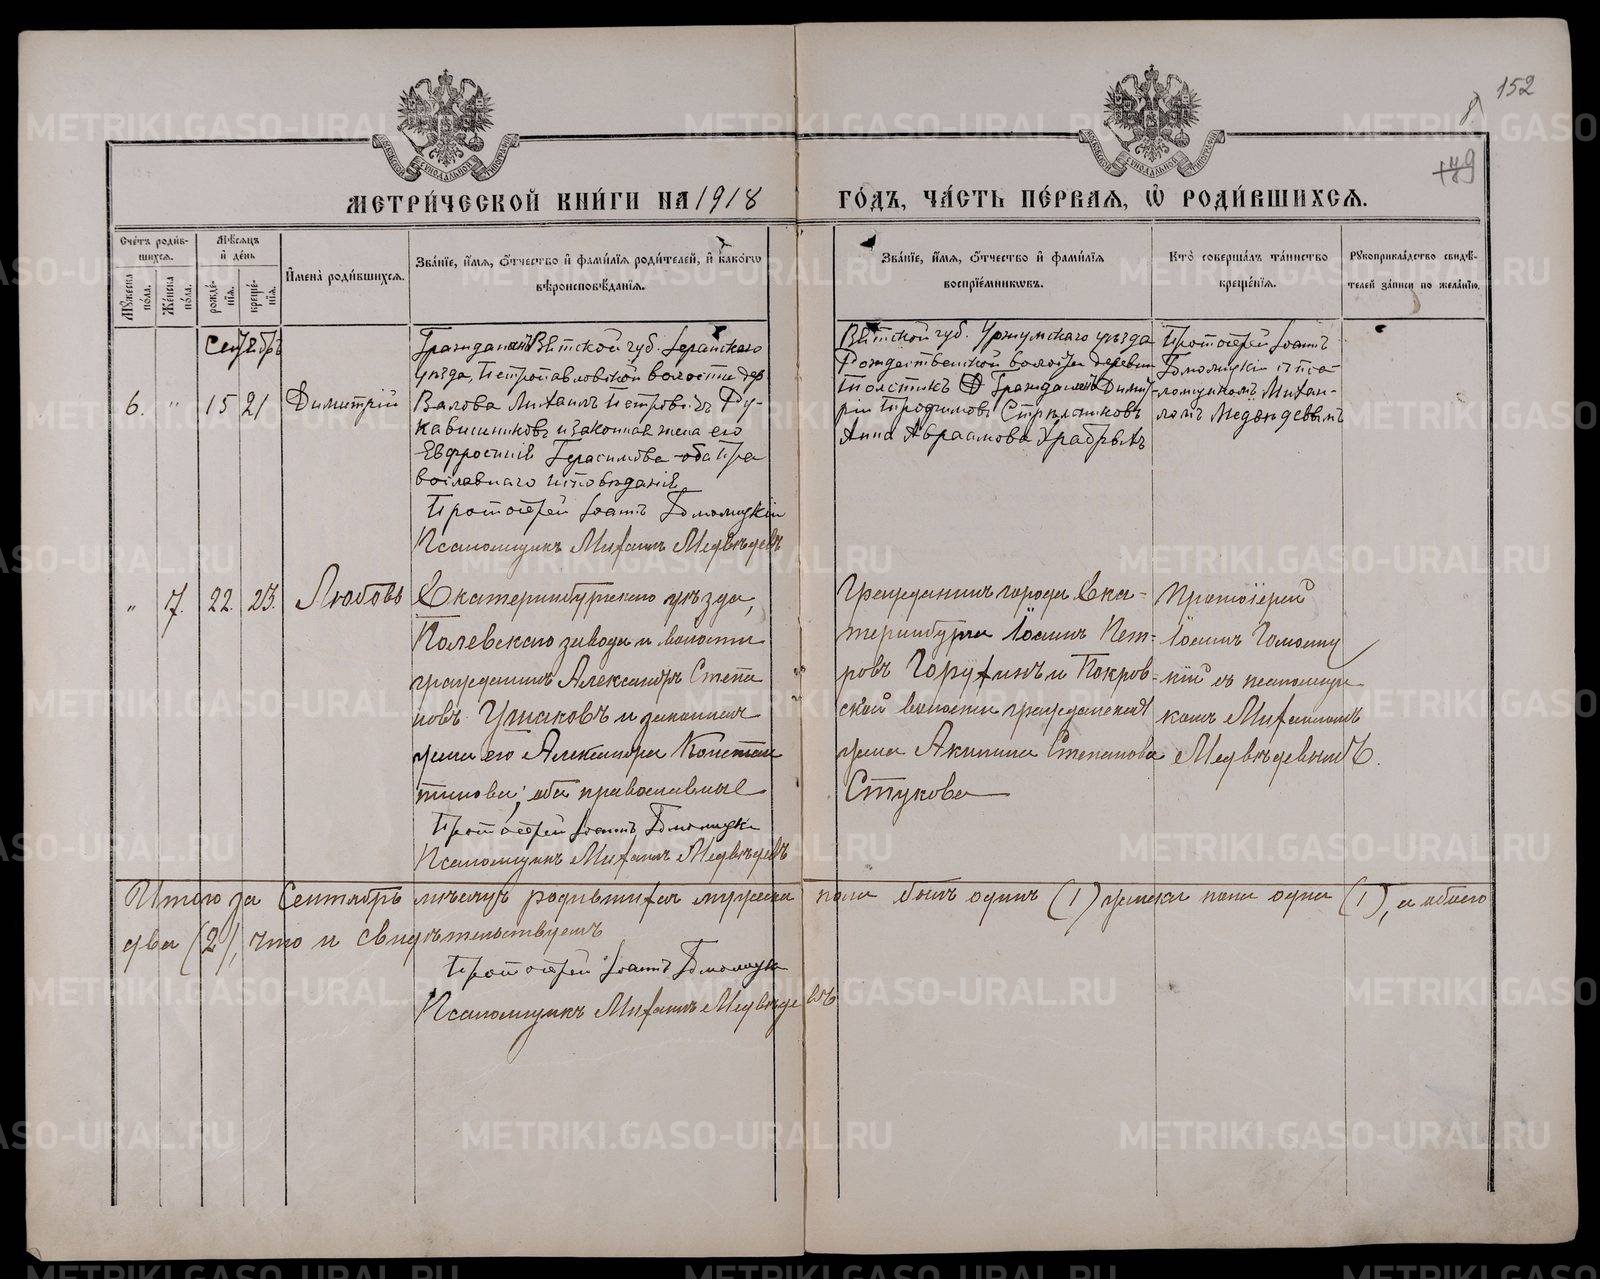 152
8
179
МЕТРИ́ЧЕСКОЙ КНИ́ГИ НА 1918
ГО́ДЪ, ЧА́СТЬ ПЕ́РВАѦ, Ѡ РОДИ́ВШИХСѦ.
Сче́тъ роди́в-
шихсѧ.
Мꙋ́жеска по́ла.
Же́нска по́ла.
Мѣ́сѧцъ и҆ де́нь
рожде́-
нїѧ.
креще́-
нїѧ.
И҆мена̀ роди́вшихсѧ.
Зва́нїе, и҆́мѧ, ѻ҆́тчество и҆ фами́лїѧ роди́телей, и҆ како́гѡ
вѣроисповѣ́данїѧ.
Зва́нїе, и҆́мѧ, ѻ҆́тчество и҆ фами́лїѧ
воспрїе́мникѡвъ.
Кто̀ соверша́лъ та́инство
креще́нїѧ.
Рꙋкоприкла́дство свидѣ́-
телей за́писи по жела́нїю.
Сентябрь
6. " 15 21 Димитрій
Гражданинъ Вятской губ. Яранскаго
уѣзда, Петропавловской волости дер.
Валова Михаилъ Петровичъ Ру-
кавишниковъ и законная жена его
Евфросинія Герасимова оба Пра
вославнаго исповѣданія
Протоіерей Іоаннъ Гомолицкій
Псаломщикъ Михаилъ Медвѣдевъ
Вятской губ. Уржумскаго уѣзда
Рождественской волости деревни
Толстикъ Гражданинъ Димит-
рій Трофимовъ Стрѣльниковъ
Анна Авраамова Храбрыхъ
Протоіерей Іоаннъ
Гомолицкій и пса-
ломщикомъ Михаи-
ломъ Медвѣдевымъ
" 7. 22. 23. Любовь
Екатеринбургскаго уѣзда,
Полевскаго завода и волости
гражданинъ Александръ Степа
новъ Ушаковъ и законная
жена его Александра Констан
тинова; оба православные
Протоіерей Іоаннъ Гомолицкій
Псаломщикъ Михаилъ Медвѣдевъ
Гражданинъ города Ека-
теринбурга Іоаннъ Пет-
ровъ и Покров-
ской волости гражданская
жена Акилина Степанова
Стукова
Протоіерей
Іоаннъ Гомолиц
кій съ псаломщи
комъ Михаиломъ
Медвѣдевымъ.
Итого за Сентябрь мѣсяцъ родившихся мужска пола былъ одинъ (1) женска пола одна (1), а обоего
два (2), что и свидѣтельствуемъ
Протоіерей Іоаннъ Гомолицкій
Псаломщикъ Михаилъ Медвѣдевъ
METRIKI.GASO-URAL.RU